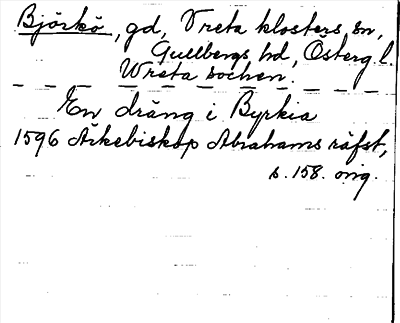 Björkö, gd, Vreta klosters sn,
Gullbergs hd, Österg. l.
Wreta sochen.
En dräng i Byrkia
1596 Ärkebiskop Abrahams räfst,
s. 158. orig.